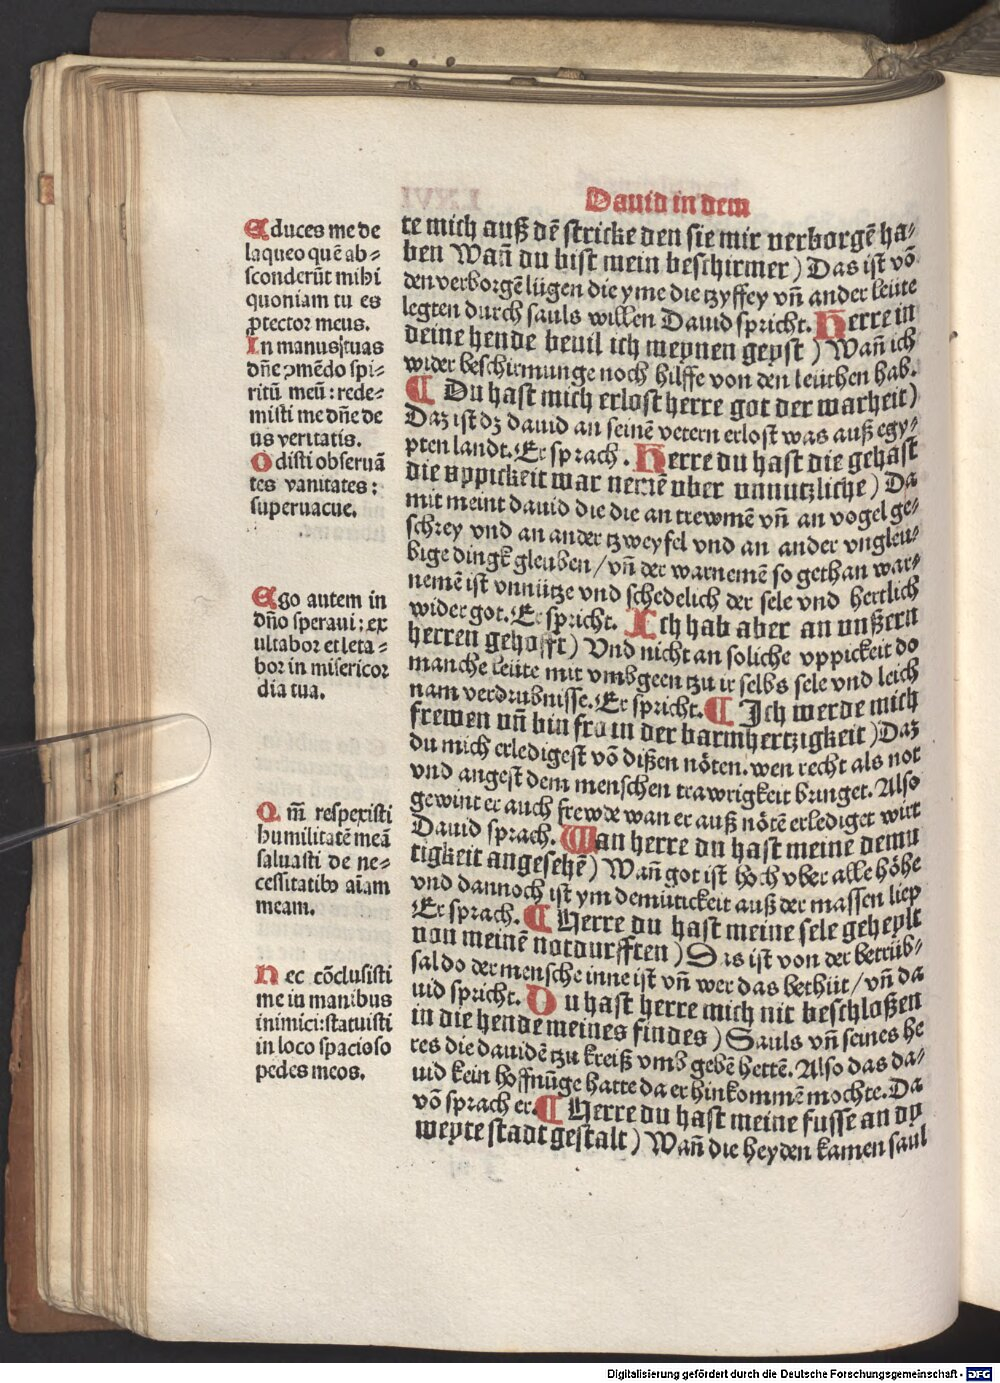 Dauid in dem
Educes me de
laqueo quē ab⸗
sconderūt mihi
quoniam tu es
ꝓtector meus.
In manus tuas
dn̄e ꝯmēdo spi⸗
ritū meū : rede⸗
misti me dn̄e de
us veritatis.
Odisti obseruā
tes vanitates :
superuacue.
Ego autem in
dn̄o speraui : ex
ultabor et leta⸗
bor in misericor
dia tua.
Qm̄ respexisti
humilitatē meā
saluasti de ne⸗
cessitatibꝰ aīam
meam.
Nec cōclusisti
me in manibus
inimici : statuisti
in loco spacioso
pedes meos.
te mich auß dē stricke den sie mir verborgē ha⸗
ben Wan̄ du bist mein beschirmer) Das ist vō
den verborgē lügen die yme die tzyffey vn̄ ander leüte
legten durch sauls willen Dauid spricht. Herre in
deine hende beuil ich meynen geyst) Wan̄ ich
wider beschirmunge noch hilffe von den leüthen hab.
¶ Du hast mich erlost herre got der warheit)
Daz ist dz dauid an seinē vetern erlost was auß egy⸗
pten landt. Er sprach. Herre du hast die gehast
die vppickeit war nemē vber vnnutzliche) Da
mit meint dauid die die an trewmē vn̄ an vogel ge⸗
schrey vnd an ander tzweyfel vnd an ander vngleu⸗
bige dingk gleuben / vn̄ der warnemē so gethan war⸗
nemē ist vnnütze vnd schedelich der sele vnd hertlich
wider got. Er spricht. Ich hab aber an vnßern
herren gehofft) Vnd nicht an soliche vppickeit do
manche leüte mit vmbgeen tzu ir selbs sele vnd leich
nam verdrubnisse. Er spricht. ¶ Ich werde mich
frewen vn̄ bin fro in der barmhertzigkeit) Daz
du mich erledigest vō dißen nöten. wen recht als not
vnd angest dem menschen trawrigkeit bringet. Also
gewint er auch frewde wan er auß nötē erlediget wirt
Dauid sprach. Wan herre du hast meine demu
tigkeit angesehē) Wan̄ got ist hoch vber alle höhe
vnd dannoch ist ym demütickeit auß der massen liep
Er sprach. ¶ Herre du hast meine sele geheylt
von meinē notdurfften) Das ist von der betrüb⸗
sal do der mensche inne ist vn̄ wer das bethüt / vn̄ da
uid spricht. Du hast herre mich nit beschloßen
in die hende meines findes) Sauls vn̄ seines he
res die dauidē tzu kreiß vmb gebē hettē. Also das da⸗
uid kein hoffnūge hatte da er hin kommē mochte. Da
vō sprach er. ¶ Herre du hast meine fusse an dy
weyte stadt gestalt) Wan̄ die heyden kamen saul
Digitalisierung gefördert durch die Deutsche Forschungsgemeinschaft - DFG